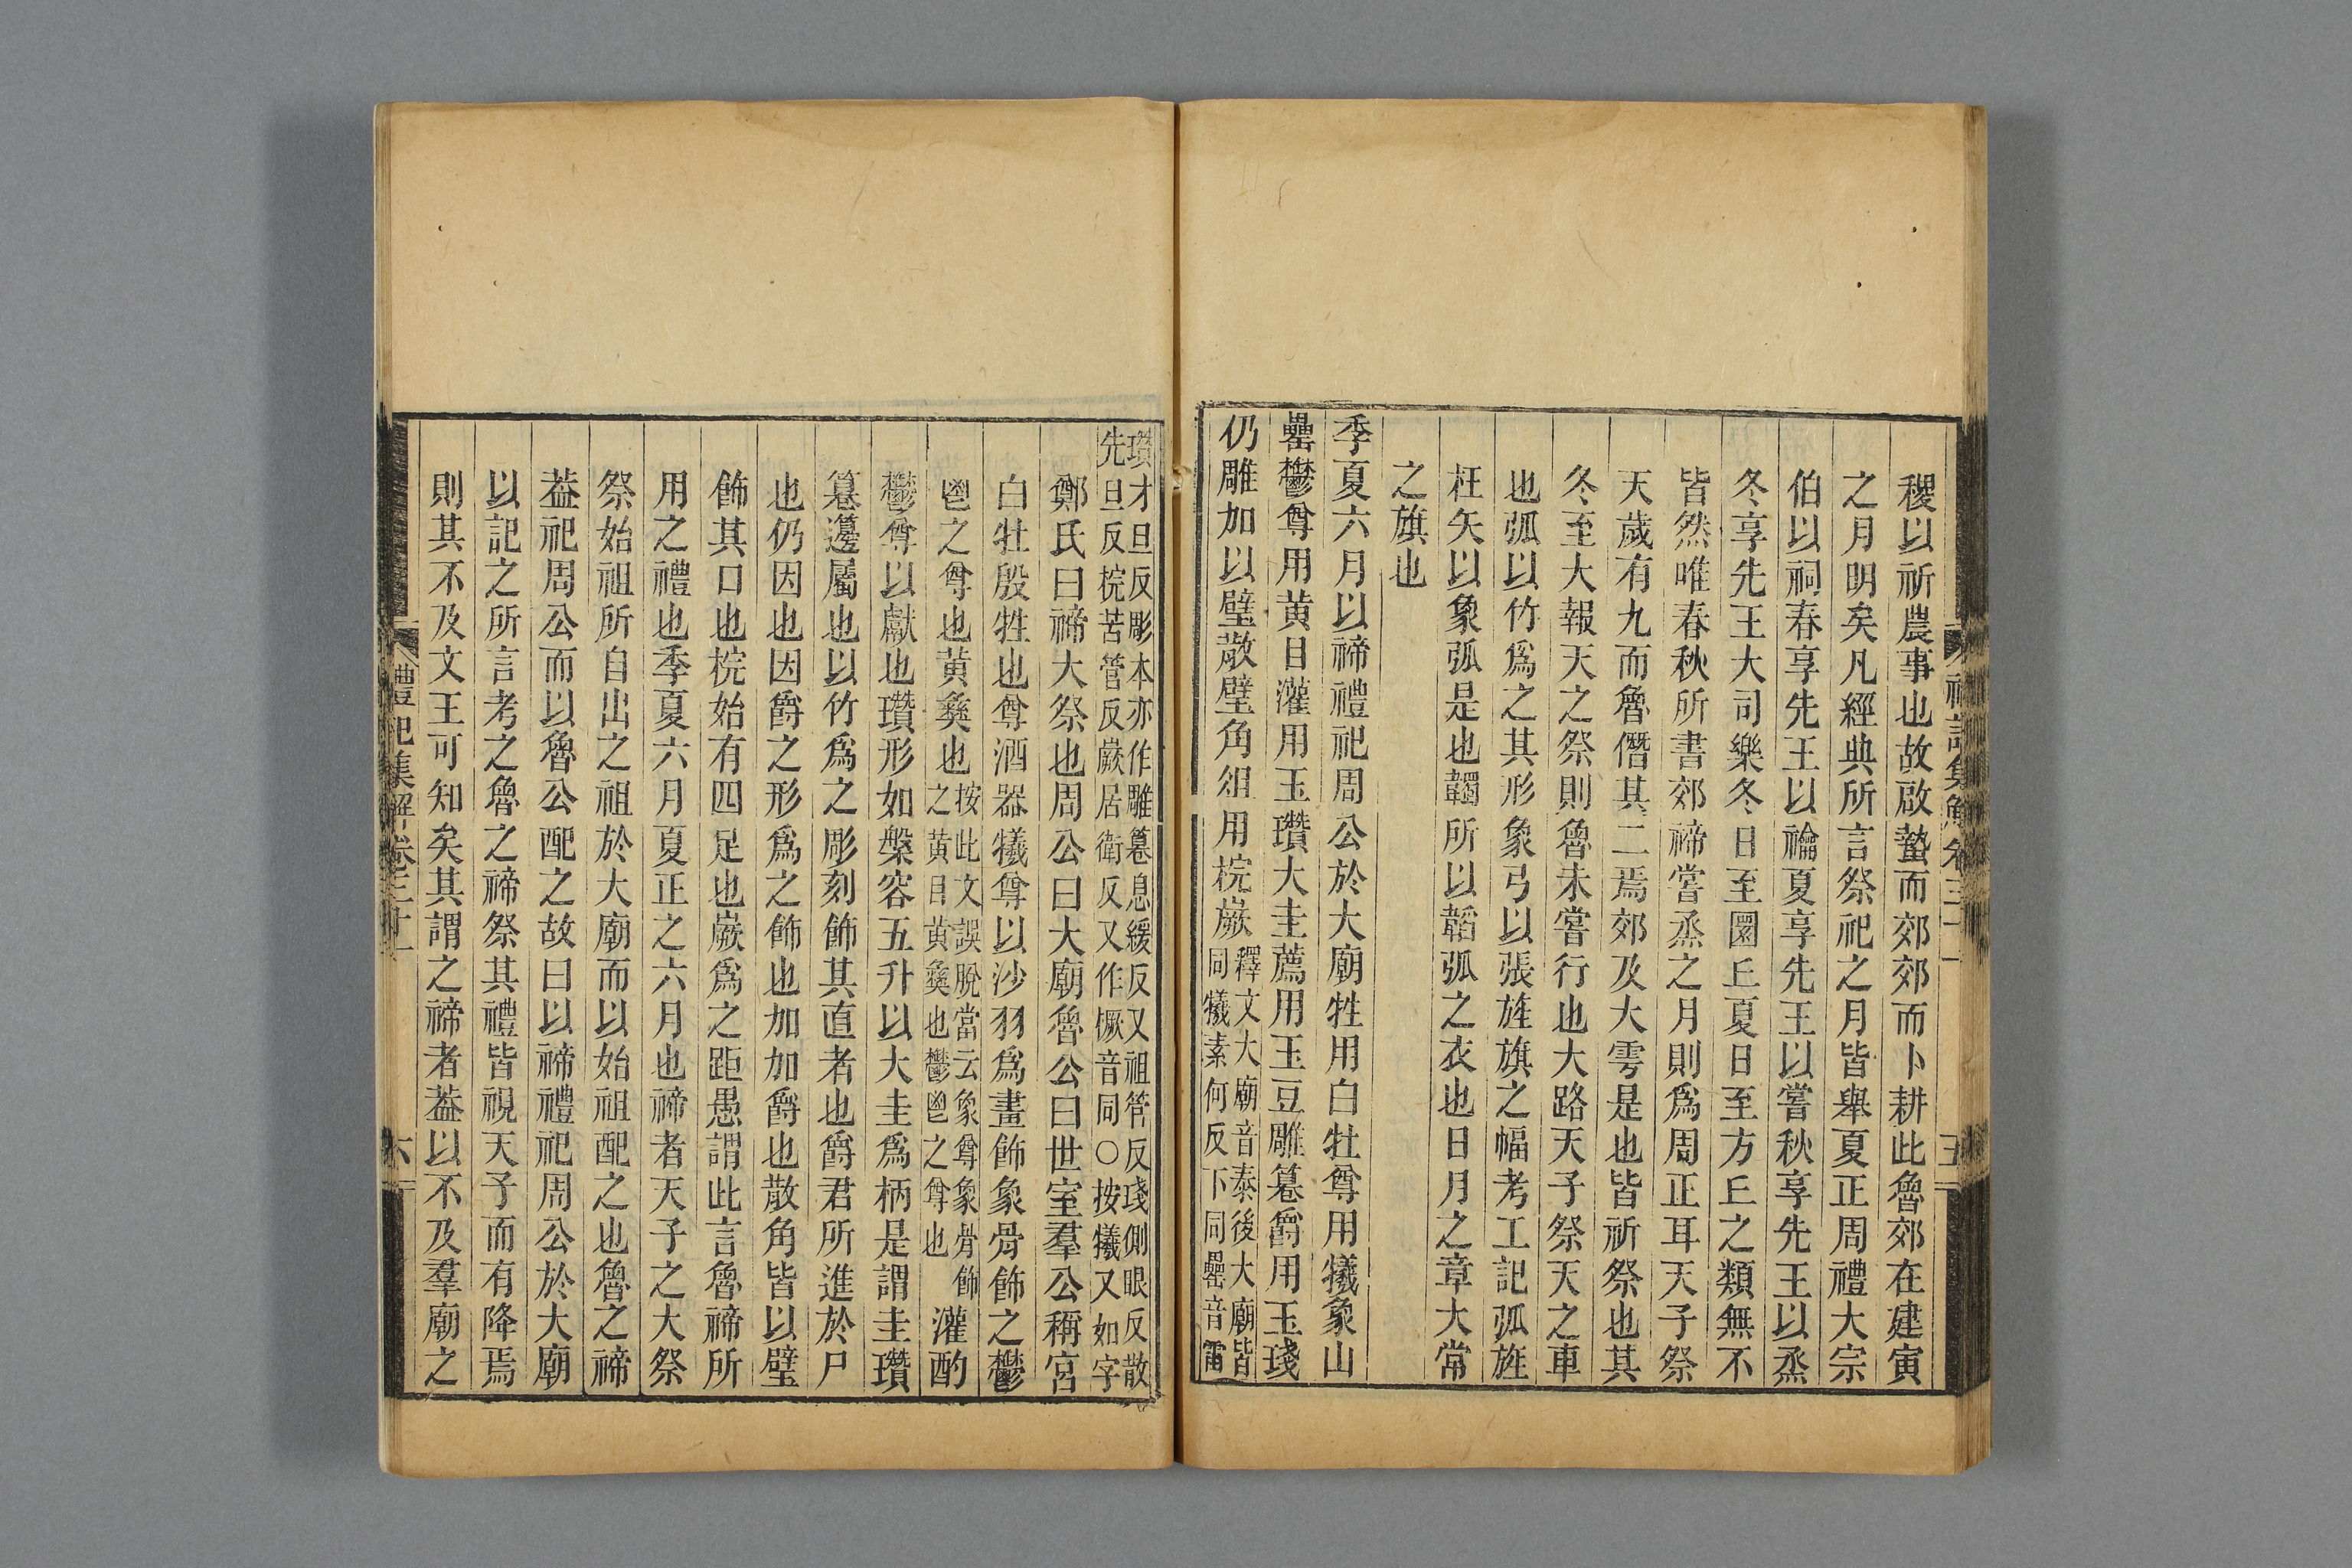 稷以祈農事也故啟蟄而郊郊而卜耕此魯郊在建寅
之月明矣凡經典所言祭祀之月皆舉夏正周禮大宗
伯以祠春享先王以禴夏享先王以嘗秋享先王以烝
冬享先王大司樂冬日至圜丘夏日至方丘之類無不
皆然唯春秋所書郊禘嘗烝之月則爲周正耳天子祭
天歲有九而魯僭其二焉郊及大雩是也皆祈祭也其
冬至大報天之祭則魯未嘗行也大路天子祭天之車
也弧以竹爲之其形象弓以張旌旗之幅考工記弧旌
枉矢以象弧是也韣所以韜弧之衣也日月之章大常
之旗也
季夏六月以禘禮祀周公於大廟牲用白牡尊用犧象山
罍鬱尊用黃目灌用玉瓚大圭薦用玉豆雕篹爵用玉琖
仍雕加以璧散璧角俎用梡嶡釋文大廟音泰後大廟皆
同犧素何反下同罍音雷
瓚才旦反彫本亦作雕篹息緩反又祖管反琖側眼反散
先旦反梡苦管反嶡居衛反又作橛音同○按犧又如字
鄭氏曰禘大祭也周公曰大廟魯公曰世室羣公稱宮
白牡殷牲也尊酒器犧尊以沙羽爲畫飾象骨飾之鬱
鬯之尊也黃彝也按此文誤脫當云象尊象骨飾
之黃目黃彝也鬱鬯之尊也灌酌
鬱尊以獻也瓚形如槃容五升以大圭爲柄是謂圭瓚
篹籩屬也以竹爲之彫刻飾其直者也爵君所進於尸
也仍因也因爵之形爲之飾也加加爵也散角皆以璧
飾其口也梡始有四足也嶡爲之距愚謂此言魯禘所
用之禮也季夏六月夏正之六月也禘者天子之大祭
祭始祖所自出之祖於大廟而以始祖配之也魯之禘
葢祀周公而以魯公配之故曰以禘禮祀周公於大廟
以記之所言考之魯之禘祭其禮皆視天子而有降焉
則其不及文王可知矣其謂之禘者葢以不及羣廟之
禮記集解卷三十一
六